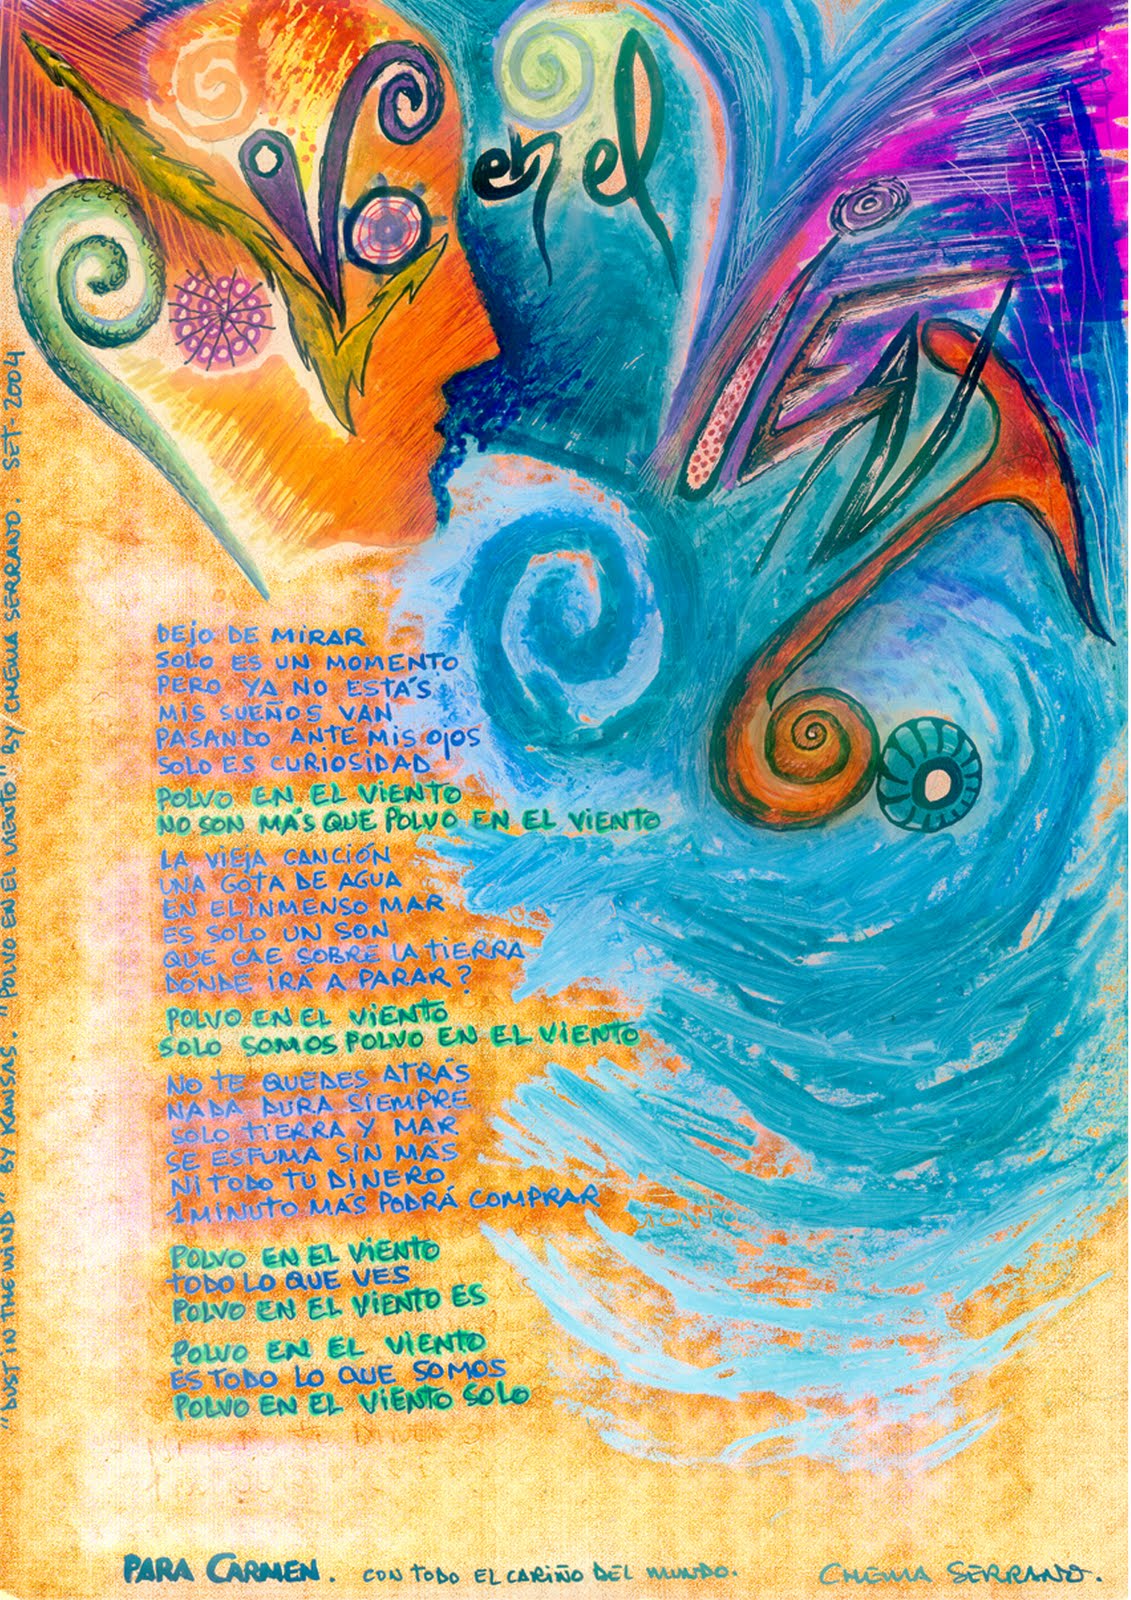 POLVO
en el
VIENTO
DEJO DE MIRAR
SOLO ES UN MOMENTO
PERO YA NO ESTÁS
MIS SUEÑOS VAN
PASANDO ANTE MIS OJOS
SOLO ES CURIOSIDAD
POLVO EN EL VIENTO
NO SON MÁS QUE POLVO EN EL VIENTO
LA VIEJA CANCIÓN
UNA GOTA DE AGUA
EN EL INMENSO MAR
ES SOLO UN SON
QUE CAE SOBRE LA TIERRA
DÓNDE IRÁ A PARAR?
POLVO EN EL VIENTO
SOLO SOMOS POLVO EN EL VIENTO
NO TE QUEDES ATRÁS
NADA DURA SIEMPRE
SOLO TIERRA Y MAR
SE ESFUMA SIN MÁS
NI TODO TU DINERO
1 MINUTO MÁS PODRÁ COMPRAR
POLVO EN EL VIENTO
TODO LO QUE VES
POLVO EN EL VIENTO ES
POLVO EN EL VIENTO
ES TODO LO QUE SOMOS
POLVO EN EL VIENTO SOLO
"DUST IN THE WIND" BY KANSAS. "POLVO EN EL VIENTO" BY CHEMA SERRANO. SET-2004
PARA CARMEN. CON TODO EL CARIÑO DEL MUNDO.
CHEMA SERRANO.